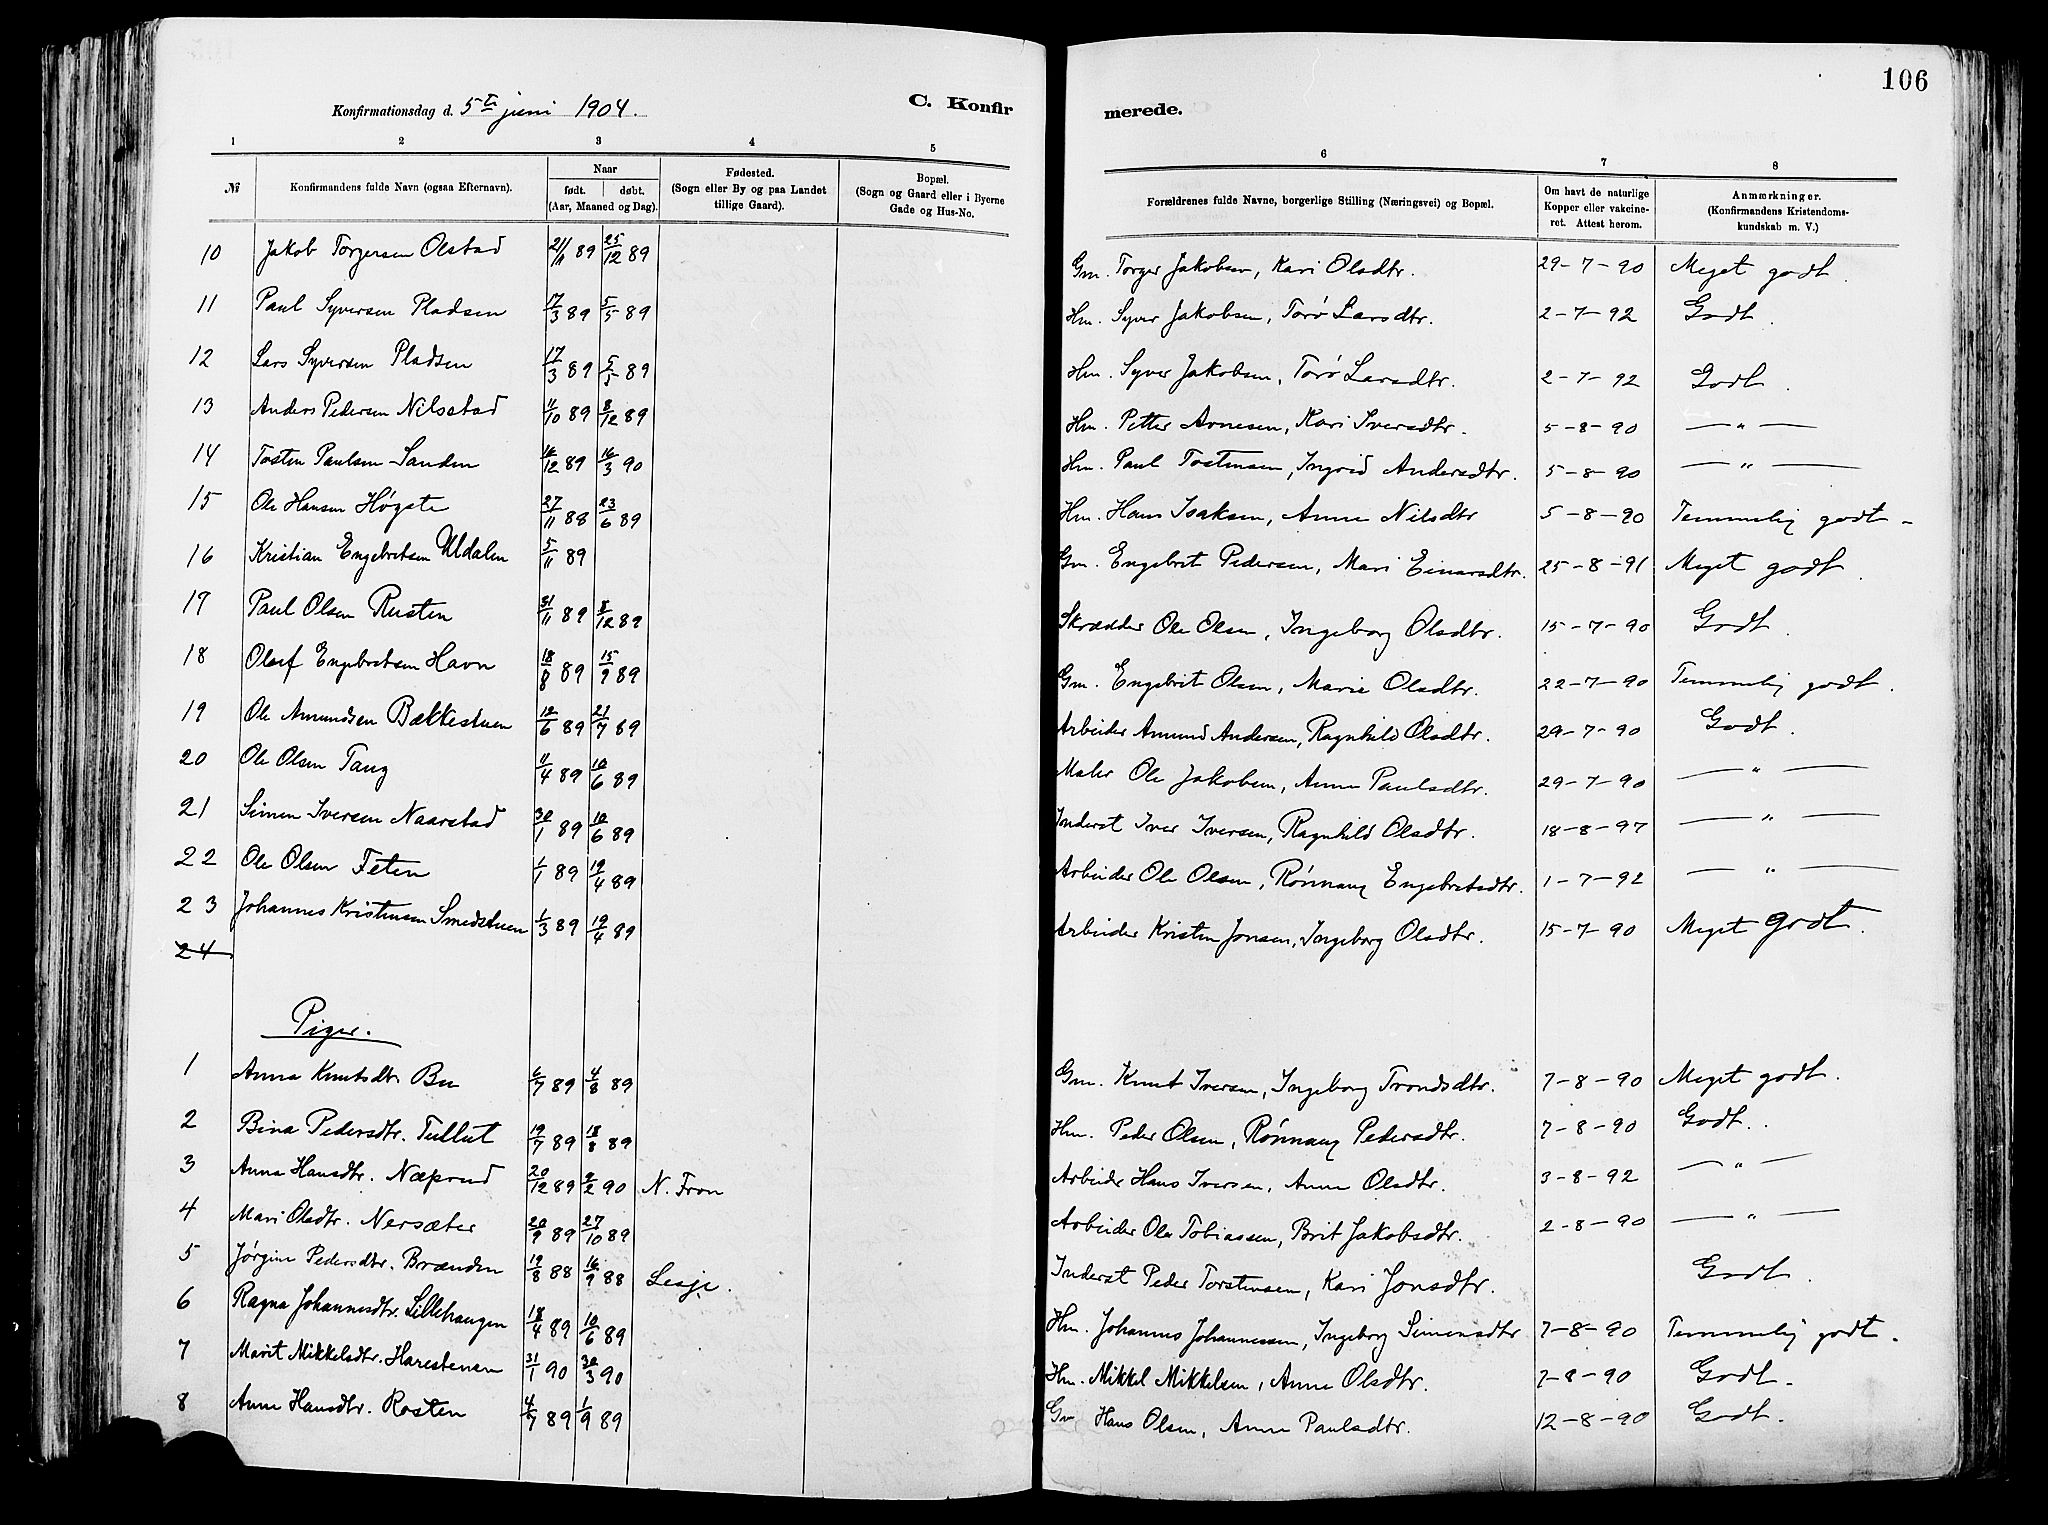 106
Konfirmationsdag d. 5te juni 1904.
C. Konfirmerede.
1 2 3 4 5 6 7 8
№ Konfirmandens fulde Navn (ogsaa Efternavn). Naar født. døbt. (Aar, Maaned og Dag). Fødested. (Sogn eller By og paa Landet tillige Gaard). Bopæl. (Sogn og Gaard eller i Byerne Gade og Hus-No. Forældrenes fulde Navne, borgerlige Stilling (Næringsvei) og Bopæl. Om havt de naturlige Kopper eller vakcineret. Attest herom. Anmærkninger. (Konfirmandens Kristendomskundskab m. V.)
10 Jakob Torgersen Olstad 21/11 89 25/12 89 Gm. Torger Jakobsen, Kari Olsdtr. 29-7-90 Meget godt.
11 Paul Syversen Pladsen 17/3 89 5/5 89 Hm. Syver Jakobsen, Torø Larsdtr. 2-7-92 Godt.
12 Lars Syversen Pladsen 17/3 89 5/5 89 Hm. Syver Jakobsen, Torø Larsdtr. 2-7-92 Godt.
13 Anders Pedersen Nilsstad 11/10 89 8/12 89 Hm. Petter Arnesen, Kari Iversdtr. 5-8-90 — " —
14 Tosten Paulsen Sanden 16/12 89 16/3 90 Hm. Paul Tostensen, Ingrid Andersdtr. 5-8-90 — " —
15 Ole Hansen Høgste 27/11 88 23/6 89 Hm. Hans Isaksen, Anne Nilsdtr 5-8-90 Temmelig godt -
16 Kristian Engebretsen Uldalen 5/11 89 Gm. Engebrit Pedersen, Mari Einarsdtr. 25-8-91 Meget godt.
17 Paul Olsen Rusten 31/11 89 8/12 89 Skrædder Ole Olsen, Ingeborg Olsdtr. 15-7-90 Godt.
18 Olaf Engebretsen Havn 18/8 89 15/9 89 Gm. Engebrit Olsen, Marie Olsdtr. 22-7-90 Temmelig godt.
19 Ole Amundsen Bækkestuen 12/6 89 21/7 89 Arbeider Amund Andersen, Ragnhild Olsdtr. 29-7-90 Godt.
20 Ole Olsen Tang 11/4 89 10/6 89 Maler Ole Jakobsen, Anne Paulsdtr. 29-7-90 — " —
21 Simen Iversen Naarstad 30/1 89 10/6 89 Inderst Iver Iversen, Ragnhild Olsdtr. 18-8-97 — " —
22 Ole Olsen Feten 1/1 89 19/4 89 Arbeider Ole Olsen, Rønnaug Engebretsdtr. 1-7-92 — " —
23 Johannes Kristensen Smedstuen 1/3 89 19/4 89 Arbeider Kristen Jonsen, Ingeborg Olsdtr. 15-7-90 Meget godt.
24
Piger.
1 Anna Knutsdtr. Bu 6/7 89 4/8 89 Gm. Knut Iversen, Ingeborg Trondsdtr. 7-8-90 Meget godt.
2 Bina Pedersdtr. Tullut 19/7 89 18/8 89 Hm. Peder Olsen, Rønnaug Pedersdtr. 7-8-90 Godt.
3 Anna Hansdtr. Næprud 20/12 89 9/2 90 N. Fron Arbeider Hans Iversen, Anne Olsdtr. 3-8-92 — " —
4 Mari Olsdtr. Nersæter 20/9 89 27/10 89 Arbeider Ole Tobiassen, Brit Jakobsdtr. 2-8-90 — " —
5 Jørgine Pedersdtr. Brænden 19/8 88 16/9 88 Lesje. Inderst Peder Torstensen, Kari Jonsdtr. Godt.
6 Ragna Johannesdtr. Lillehaugen 18/4 89 10/6 89 Hm. Johannes Johannessen, Ingeborg Simensdtr 7-8-90 Temmelig godt.
7 Marit Mikkelsdtr. Harestenen 31/1 90 30/3 90 Hm. Mikkel Mikkelsen, Anne Olsdtr. 7-8-90 Godt.
8 Anne Hansdtr. Rosten 4/7 89 1/9 89 Gm Hans Olsen, Anne Paulsdtr. 12-8-90 Godt.